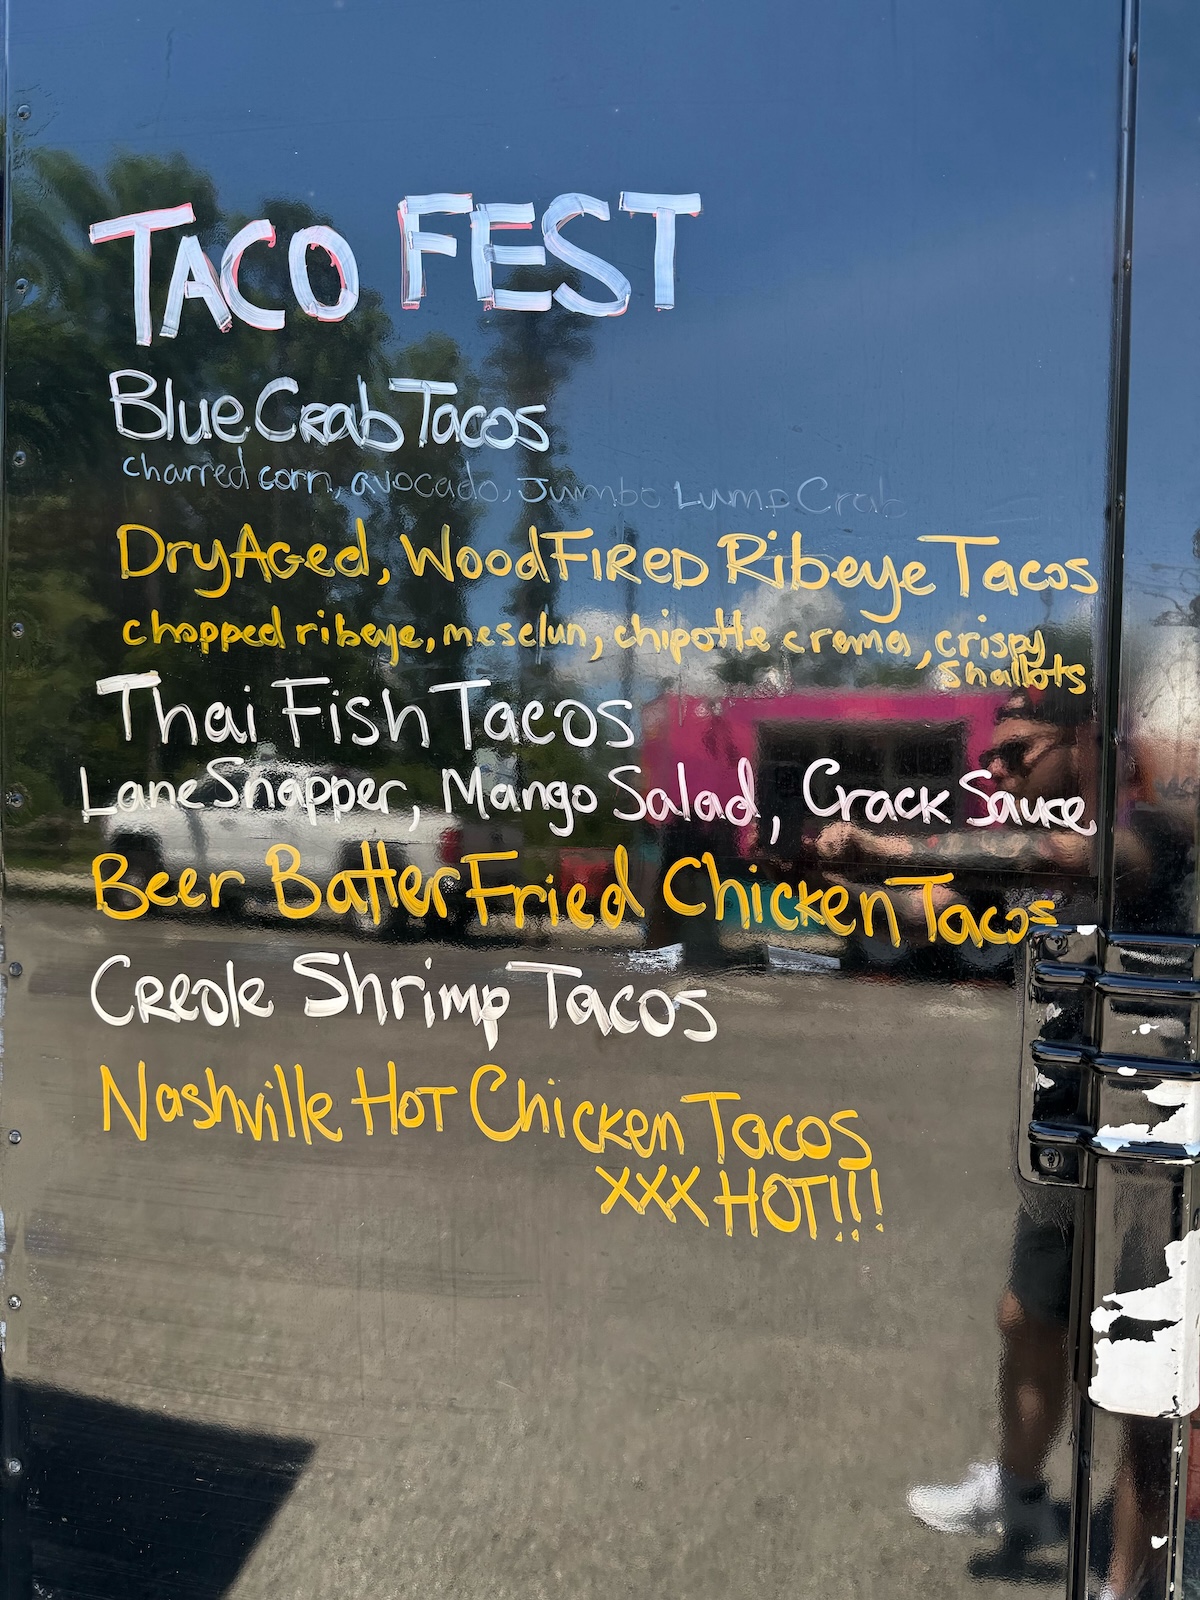 TACO FEST
Blue Crab Tacos
charred corn, avocado, Jumbo Lump Crab
Dry Aged, Wood Fired Ribeye Tacos
chopped ribeye, mesclun, chipotle crema, crispy
shallots
Thai Fish Tacos
Lane Snapper, Mango Salad, Crack Sauce
Beer Batter Fried Chicken Tacos
Creole Shrimp Tacos
Nashville HOT Chicken Tacos
XXX HOT!!!